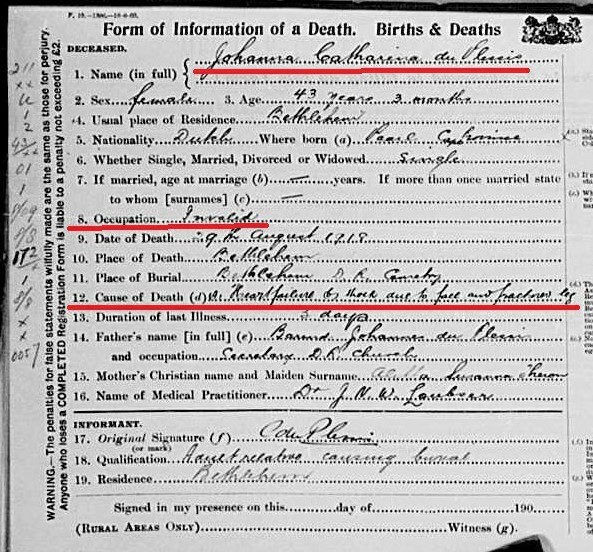 Form of Information of a Death. Births & Deaths
DECEASED.
1. Name (in full) Johanna Catharina du Plessis
2. Sex female 3. Age 43 years 3 months
4. Usual place of Residence Bethlehem
5. Nationality Dutch Where born (a) Paarl
6. Whether Single, Married, Divorced or Widowed Single
7. If married, age at marriage (b) — years. If more than one married state
to whom [surnames] (c) —
8. Occupation Invalid
9. Date of Death 9th August 1918
10. Place of Death Bethlehem
11. Place of Burial Bethlehem D. R. Cemetry
12. Cause of Death (d) Heartfailure & shock due to fall and fractured leg
13. Duration of last Illness. 3 days
14. Father's name [in full] (e) Barend Johannes du Plessis
and occupation Secretary D.R. Church
15. Mother's Christian name and Maiden Surname Susanna Theron
16. Name of Medical Practitioner Dr J. N. W. Loubser
INFORMANT.
17. Original Signature (f) C du Plessis
(or mark)
18. Qualification Adult relative causing burial
19. Residence Bethlehem
Signed in my presence on this day of 190
(RURAL AREAS ONLY) Witness (g).
WARNING.—The penalties for false statements wilfully made are the same as those for perjury.
Anyone who loses a COMPLETED Registration Form is liable to a penalty not exceeding £2.